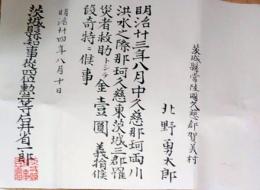 茨城縣常陸國久慈郡賀美村
北野勇太郎
明治廿三年八月中久慈那珂両川
洪水之際那珂久慈東茨城三郡罹
災者救助トシテ金壹圓義捐候
段奇特ニ候事
明治廿四年八月十日
茨城縣知事從四位勲三等石井省一郎